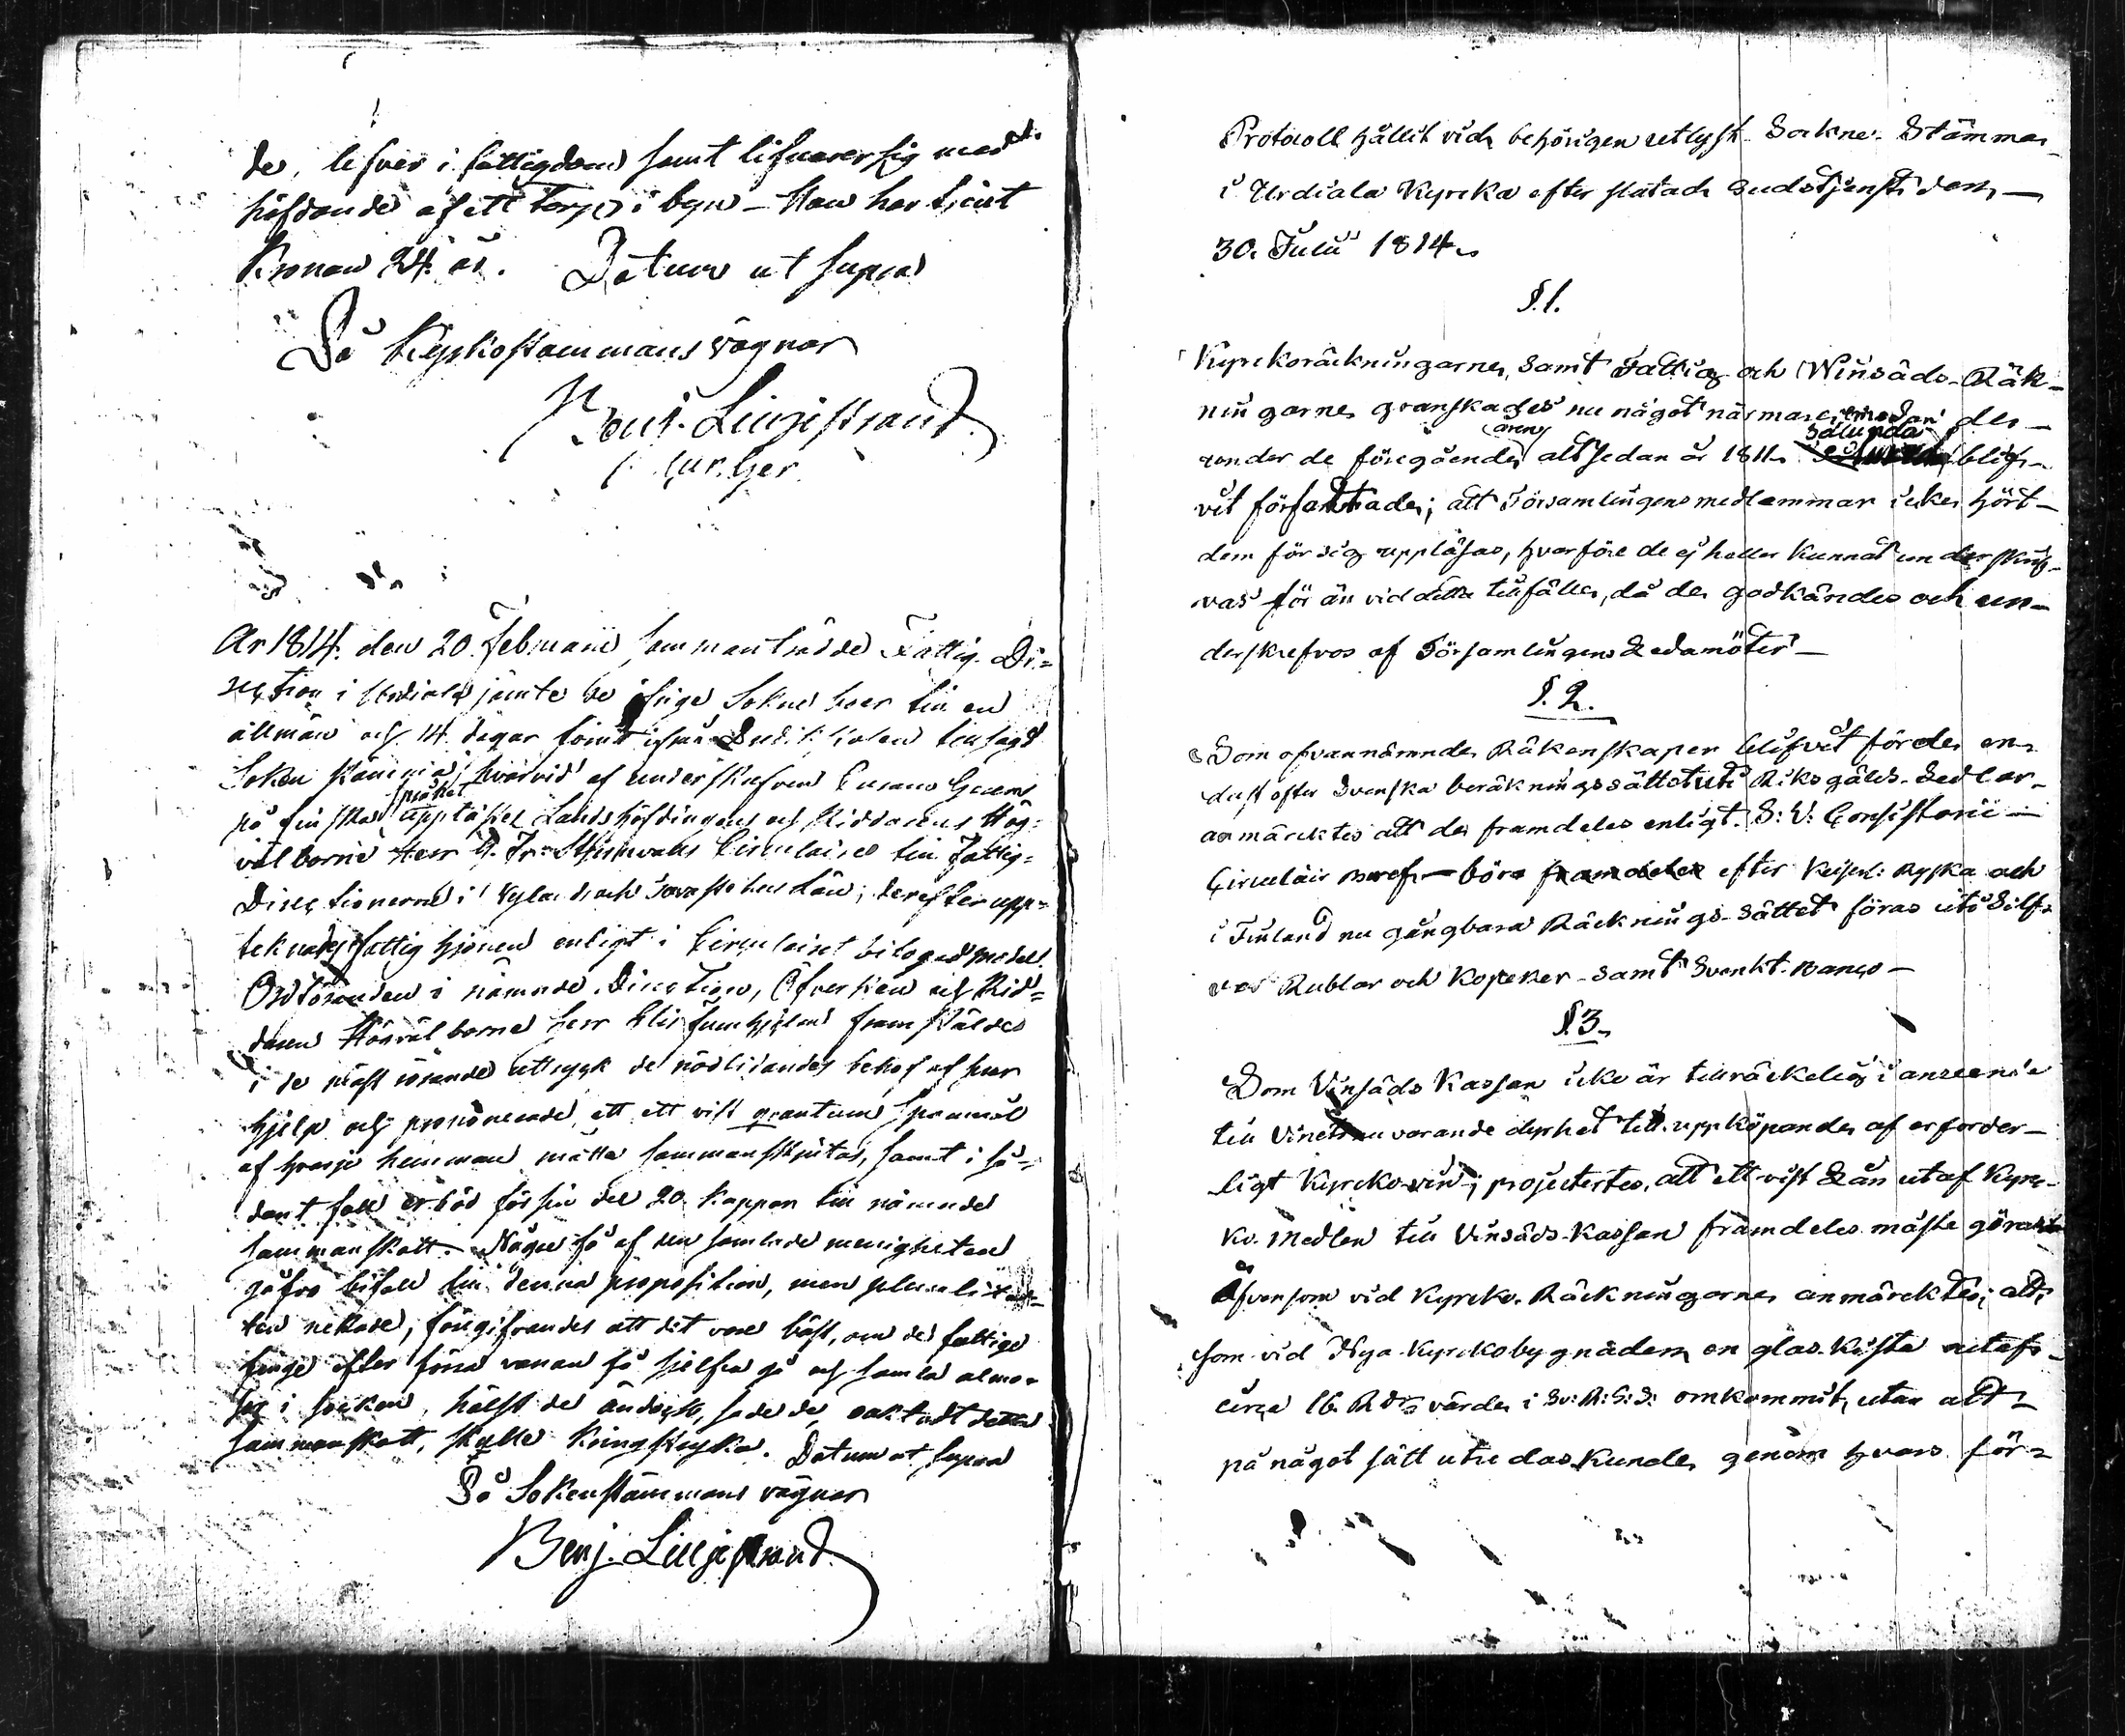 de, lefver i fattigdom samt lifnärer sig med
häfdande af ett torp i byn – Han har tient
Kronan 24 år. Datum ut supra
På Kyrkostämmans vägnar
Benj. Liljestrand
Cur. Ger.
År 1814. den 20 Februarii sammanträdde Fattig-Di=
rection i Urdiala jämte de öfrige Sokne boer till en
allmän och 14 dagar förut ifrån Predikstolen tillsagd
Soken stämma; hvarvid af underskrefven Curam Gerens
på finska språket upplästes Landshöfdingens och Riddarens Hög=
välborne Herr G. Fr. Stjernvalls Circulaire till Fattig=
Directionerne i Nylands och Tavastehus Län; derefter upp=
teknades fattighjonen enligt i Circulairet bilagad model.
Ordföranden i nämnde Direction, Öfversten och Rid=
daren Högvälborne herr Elis Furuhjelm framstälde
i de mäst rörande uttryck de nödlidandes behof af
hjelp och proponerade, att ett visst quantum spanmål
af hvarje hemman måtte sammanskjutas, samt i så=
dant fall erböd för sin del 20 kappar till nämnde
sammanskott. Någre få af den samlade menigheten
gåfvo bifall till denna proposition, men plurali=
ten nekade, föregifvandes att det vore bäst, om de fattige
finge efter förra vanan få sjelfva gå och samla almo=
sor i socken, hälst de ändock, sade de, oaktadt detta
sammanskott, skulle kringstryka. Datum ut supra
På Sokenstämmans vägnar
Benj. Liljestrand
Protocoll hållit vid behörigen utlyst Sockne-Stämma
i Urdiala Kyrcka efter slutad Gudstjenst den
30. Julii 1814.
§.1.
Kyrckoräckningarne, samt Fattig- och Winsäds-Räk-
ningarne granskades nu något närmare, emedan de
under de föregående åren alt sedan år 1811. sålunda blif-
vit författade; att Församlingens medlemmar icke hört
dem för sig uppläsas, hvarföre de ej heller kunnat underskrif-
vas för än vid detta tillfälle, då de godkändes och un-
derskrefvos af Församlingens Ledamöter
§.2.
Som ofvannämnde Räkenskaper blifvit förde en-
dast efter Svenska beräkningssättet uti Riksgälds-Sedlar,
anmärcktes att de framdeles enligt S: V: Consistorii
Circulair bref – böra efter Keiserl: Ryska och
i Finland nu gångbara Räcknings-sättet föras uti Silf-
ver Rublar och Kopeker – samt Svenkt. Banco –
§.3.
Som Vinsäds Kassan icke är tillräckelig i anseende
till Vinets nu varande dyrhet till uppköpande af erforder-
ligt Kyrcko-vin; projecterades, att ett vist Lån utaf Kyrc-
ko-Medlen till Vinsäds-Kassan framdeles måste göras
Äfvensom vid Kyrcko-Räckningarne anmärcktes; att,
som vid Nya Kyrckobygnaden en glas-kista utaf
circa 16 Rdrs värde i Sv: R: G: S: omkommit, utan att
på något sätt utredas kunde, genom hvars för-